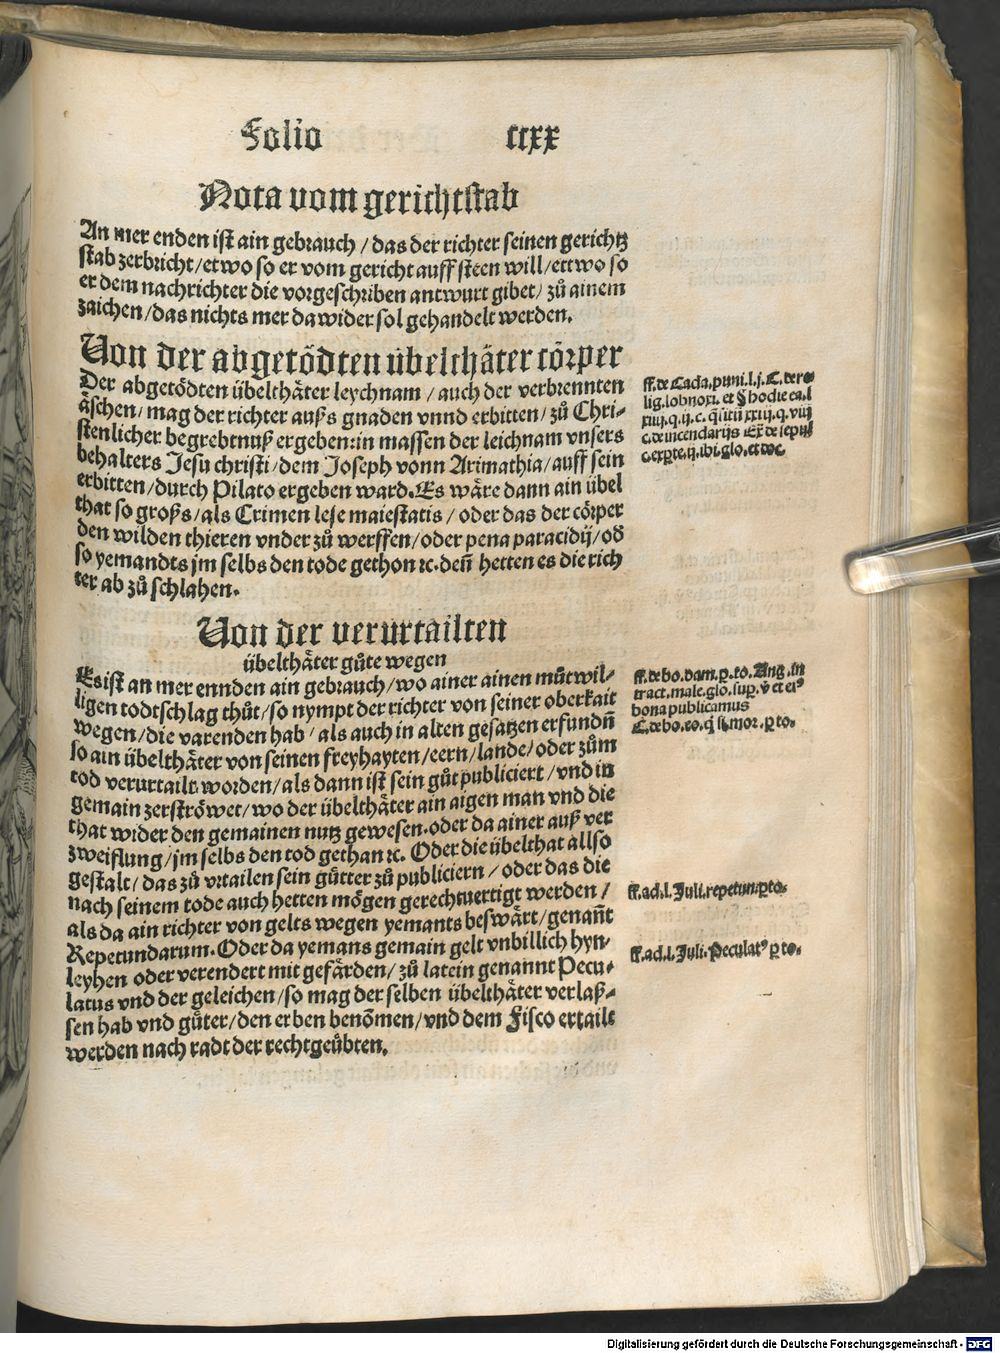 Folio ccxx
Nota vom gerichtstab
An mer enden ist ain gebrauch / das der richter seinen gerichtz
stab zerbricht / etwo so er vom gericht auff steen will / ettwo so
er dem nachrichter die vorgeschriben antwurt gibet / zů ainem
zaichen / das nichts mer da wider sol gehandelt werden.
Von der abgetödten übelthäter cörper
Der abgetödten übelthäter leychnam / auch der verbrennten
äschen / mag der richter auß gnaden vnnd erbitten / zů Chri-
stenlicher begrebtnuß ergeben: in massen der leichnam vnsers
behalters Jesu christi / dem Joseph vonn Arimathia / auff sein
erbitten / durch Pilato ergeben ward. Es wäre dann ain übel
that so groß / als Crimen lese maiestatis / oder das der cörper
den wilden thieren vnder zů werffen / oder pena paracidij / od̄
so yemandts jm selbs den tode gethon ⁊c. deñ hetten es die rich
ter ab zů schlahen.
ff. de Cada. puni. l. j. C. de re-
lig. lobnoxi. et § hodie ea. l
xiij. q. ij. c. q̄situ xxiij. q. viij
c. de incendarijs Ex̄ de sepul
c. exp̱te. ij. ibi. glo. et doc.
Von der verurtailten
übelthäter gůte wegen
Es ist an mer ennden ain gebrauch / wo ainer ainen můtwil-
ligen todtschlag thůt / so nympt der richter von seiner oberkait
wegen / die varenden hab / als auch in alten gesatzen erfundñ
so ain übelthäter von seinen freyhayten / eern / lande / oder zům
tod verurtailt worden / als dann ist sein gůt publiciert / vnd in
gemain zerströwet / wo der übelthäter ain aigen man vnd die
that wider den gemainen nutz gewesen. oder da ainer auß ver
zweiflung / jm selbs den tod gethan ⁊c. Oder die übelthat allso
gestalt / das zů vrtailen sein gůtter zů publiciern / oder das die
nach seinem tode auch hetten mögen gerechtuertigt werden /
als da ain richter von gelts wegen yemants beswärt / genañt
Repetundarum. Oder da yemans gemain gelt vnbillich hyn-
leyhen oder verendert mit gefärden / zů latein genannt Pecu-
latus vnd der geleichen / so mag der selben übelthäter verlaß-
sen hab vnd gůter / den erben benõmen / vnd dem Fisco ertailt
werden nach radt der rechtgeübten.
ff. de bo. dam. p̱. to. Ang. in
tract. male. glo. sup̱. v̄ et ei⁹
bona publicamus
C. de bo. eo. q̄ si. mor. p̱ to.
ff. ad. l. Juli. repetun. p̱ to.
ff. ad. l. Juli. Peculat⁹ p̱ to.
Digitalisierung gefördert durch die Deutsche Forschungsgemeinschaft - DFG